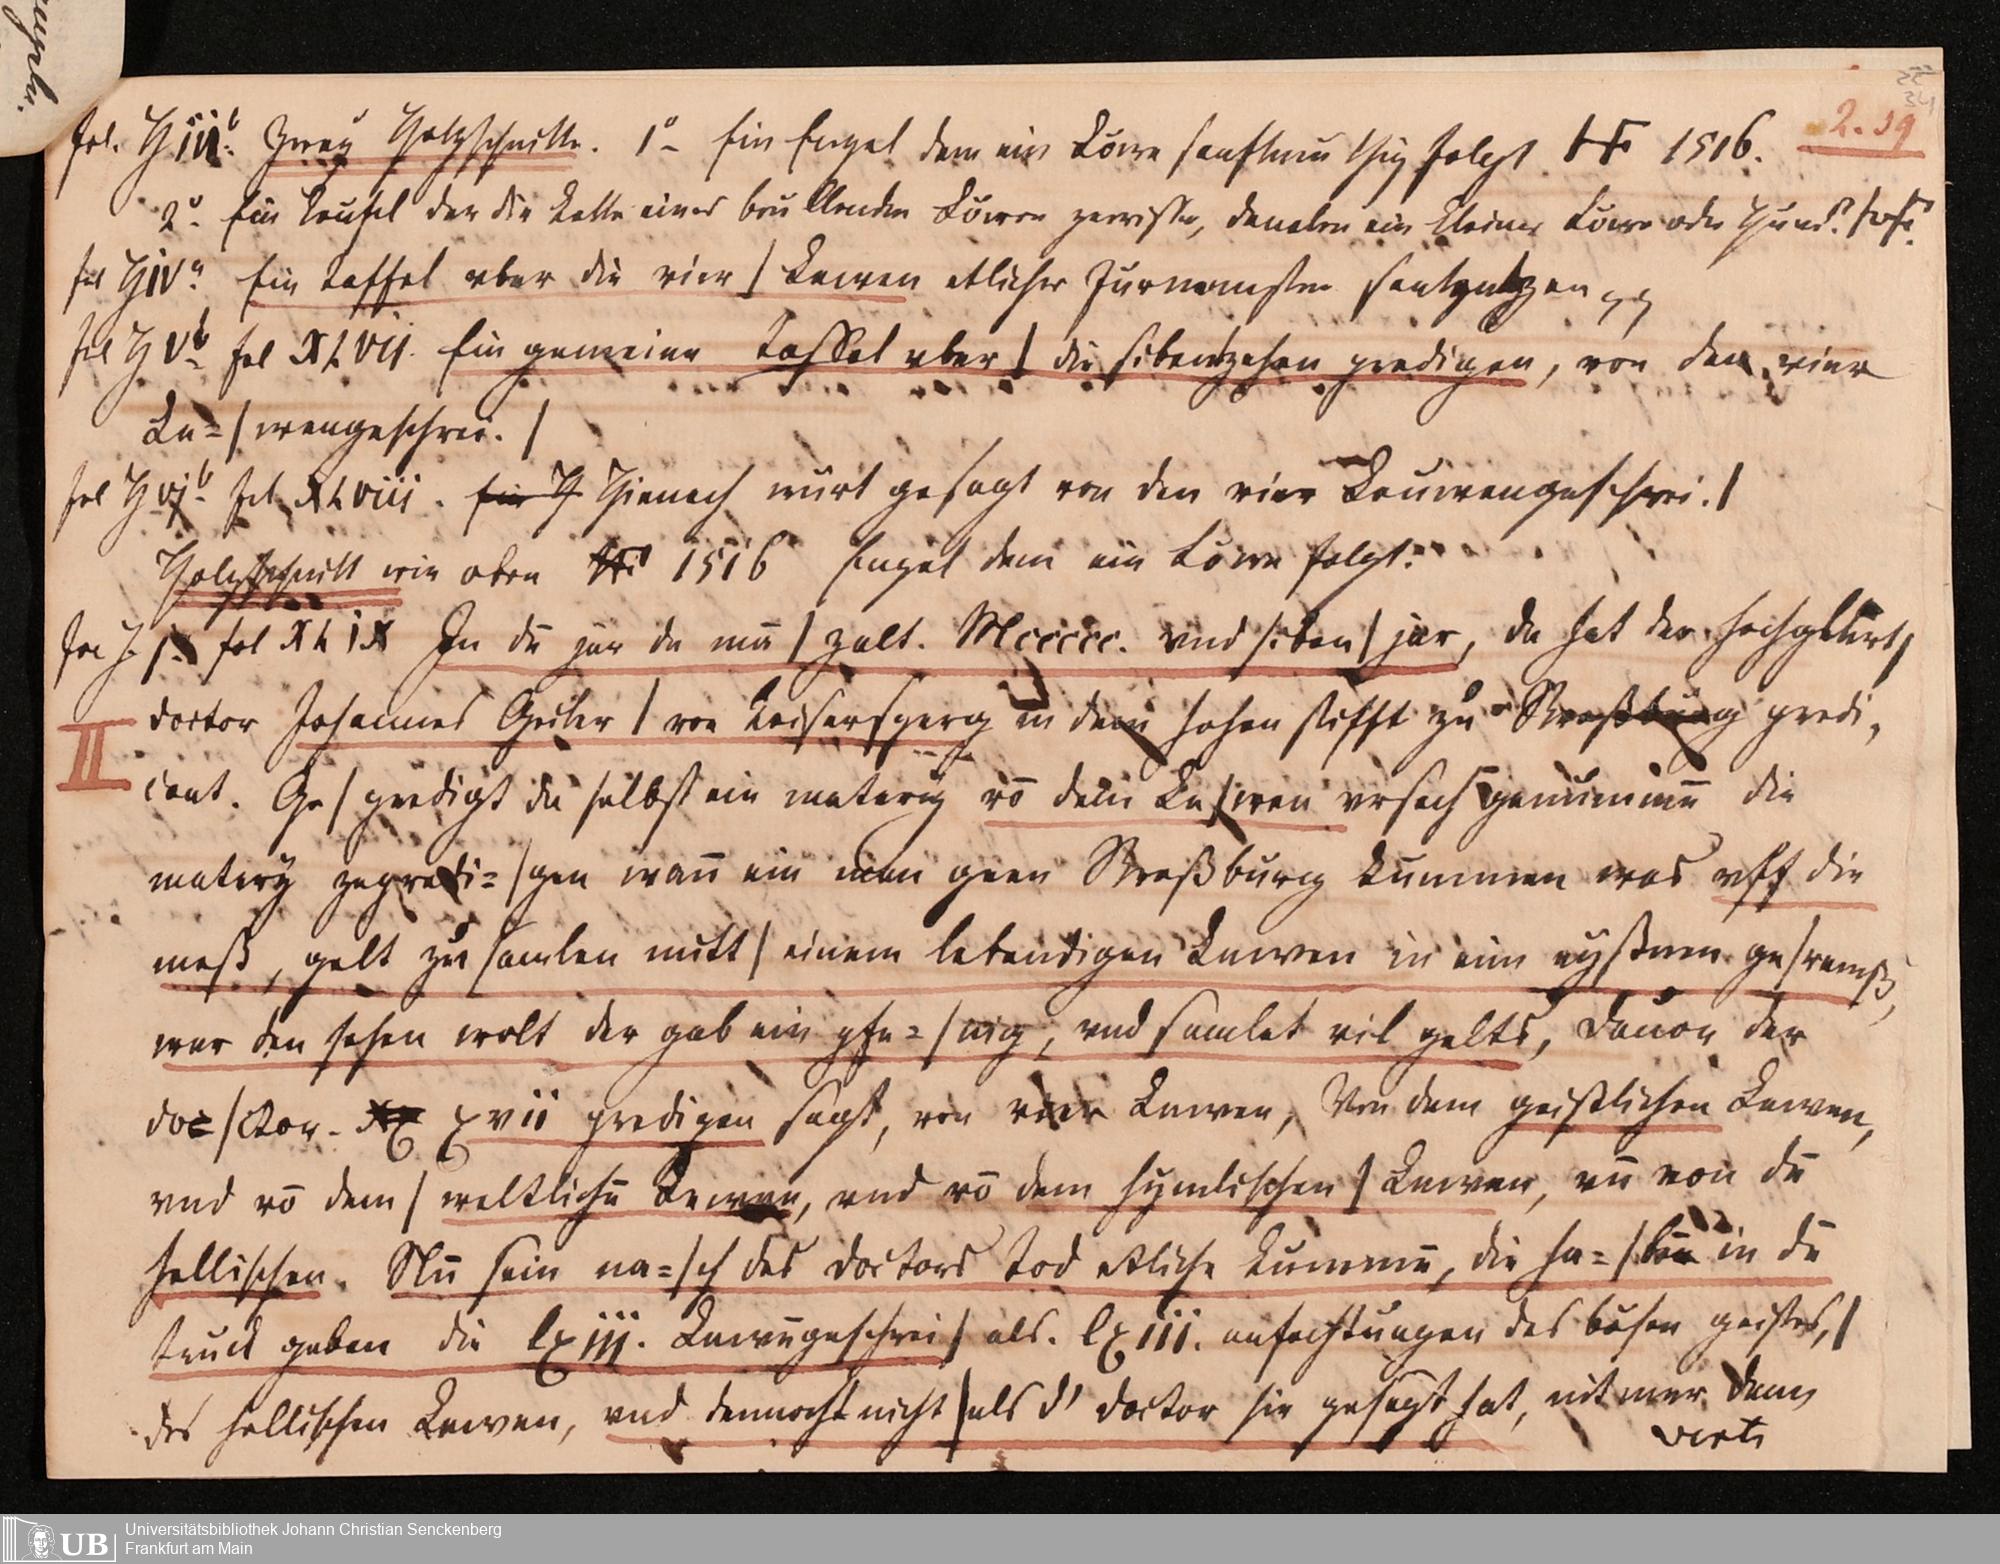 2.39
fol. H iii b. Zwey Holzschnitte. 1° – Ein Engel dem ein Löwe sanftmüthig folgt HF 1516.
2° Ein Teufel der die Kette eines brüllenden Löwen zerrissen, daneben ein kleiner Löwe oder Hund.
fol H iv a Ein taffel vber die vier / Lewen etlicher
fol H v b fol XLVII. Ein gemeine taffel vber / die sibentzehen predigen, von den vier
Le= / wengeschrei. /
fol H vj b fol XLVIII. Hienach würt gesagt von den vier Leuwengeschrei. /
Holzschnitt wie oben 1516 Engel dem ein Löwe folgt.
fol J j. fol XLIX In dē jar da mā / zalt. Mccccc. vnd siben / jar, da hat der hochgelert /
II doctor Johannes Geiler / von Keisersperg in dem hohen stifft zů Straßburg predi,
cant. Ge / predigt da selbst ein matery vō dem Le / wen vrsach genummē die
matery zepredi= / gen wañ ein man geen Straßburg kummen was vff die
meß, gelt zů samlen mitt / einem lebendigen Lewen in eim eyßnen ge / remß,
wer den sehen wolt der gab ein pfe= / nig, vnd samlet vil gelts, Dauon der
doc / ctor xvii predigen sagt, von vier Lewen, Von dem geistlichen Lewen,
vnd vō dem / weltlichē Lewen, vnd vō dem hymlischen / Lewen, vñ von dē
hellischen. Nū sein na= / ch des doctors tod etliche kummē, die ha= / ben in dē
truck geben die lxiij. Lewēgeschrei / als. lxiii. anfechtungen des bösen geistes, /
des hellischen Lewen, vnd dennocht nicht / als d' doctor sie gesagt hat, nit mer dann
verte
Universitätsbibliothek Johann Christian Senckenberg
Frankfurt am Main
UB